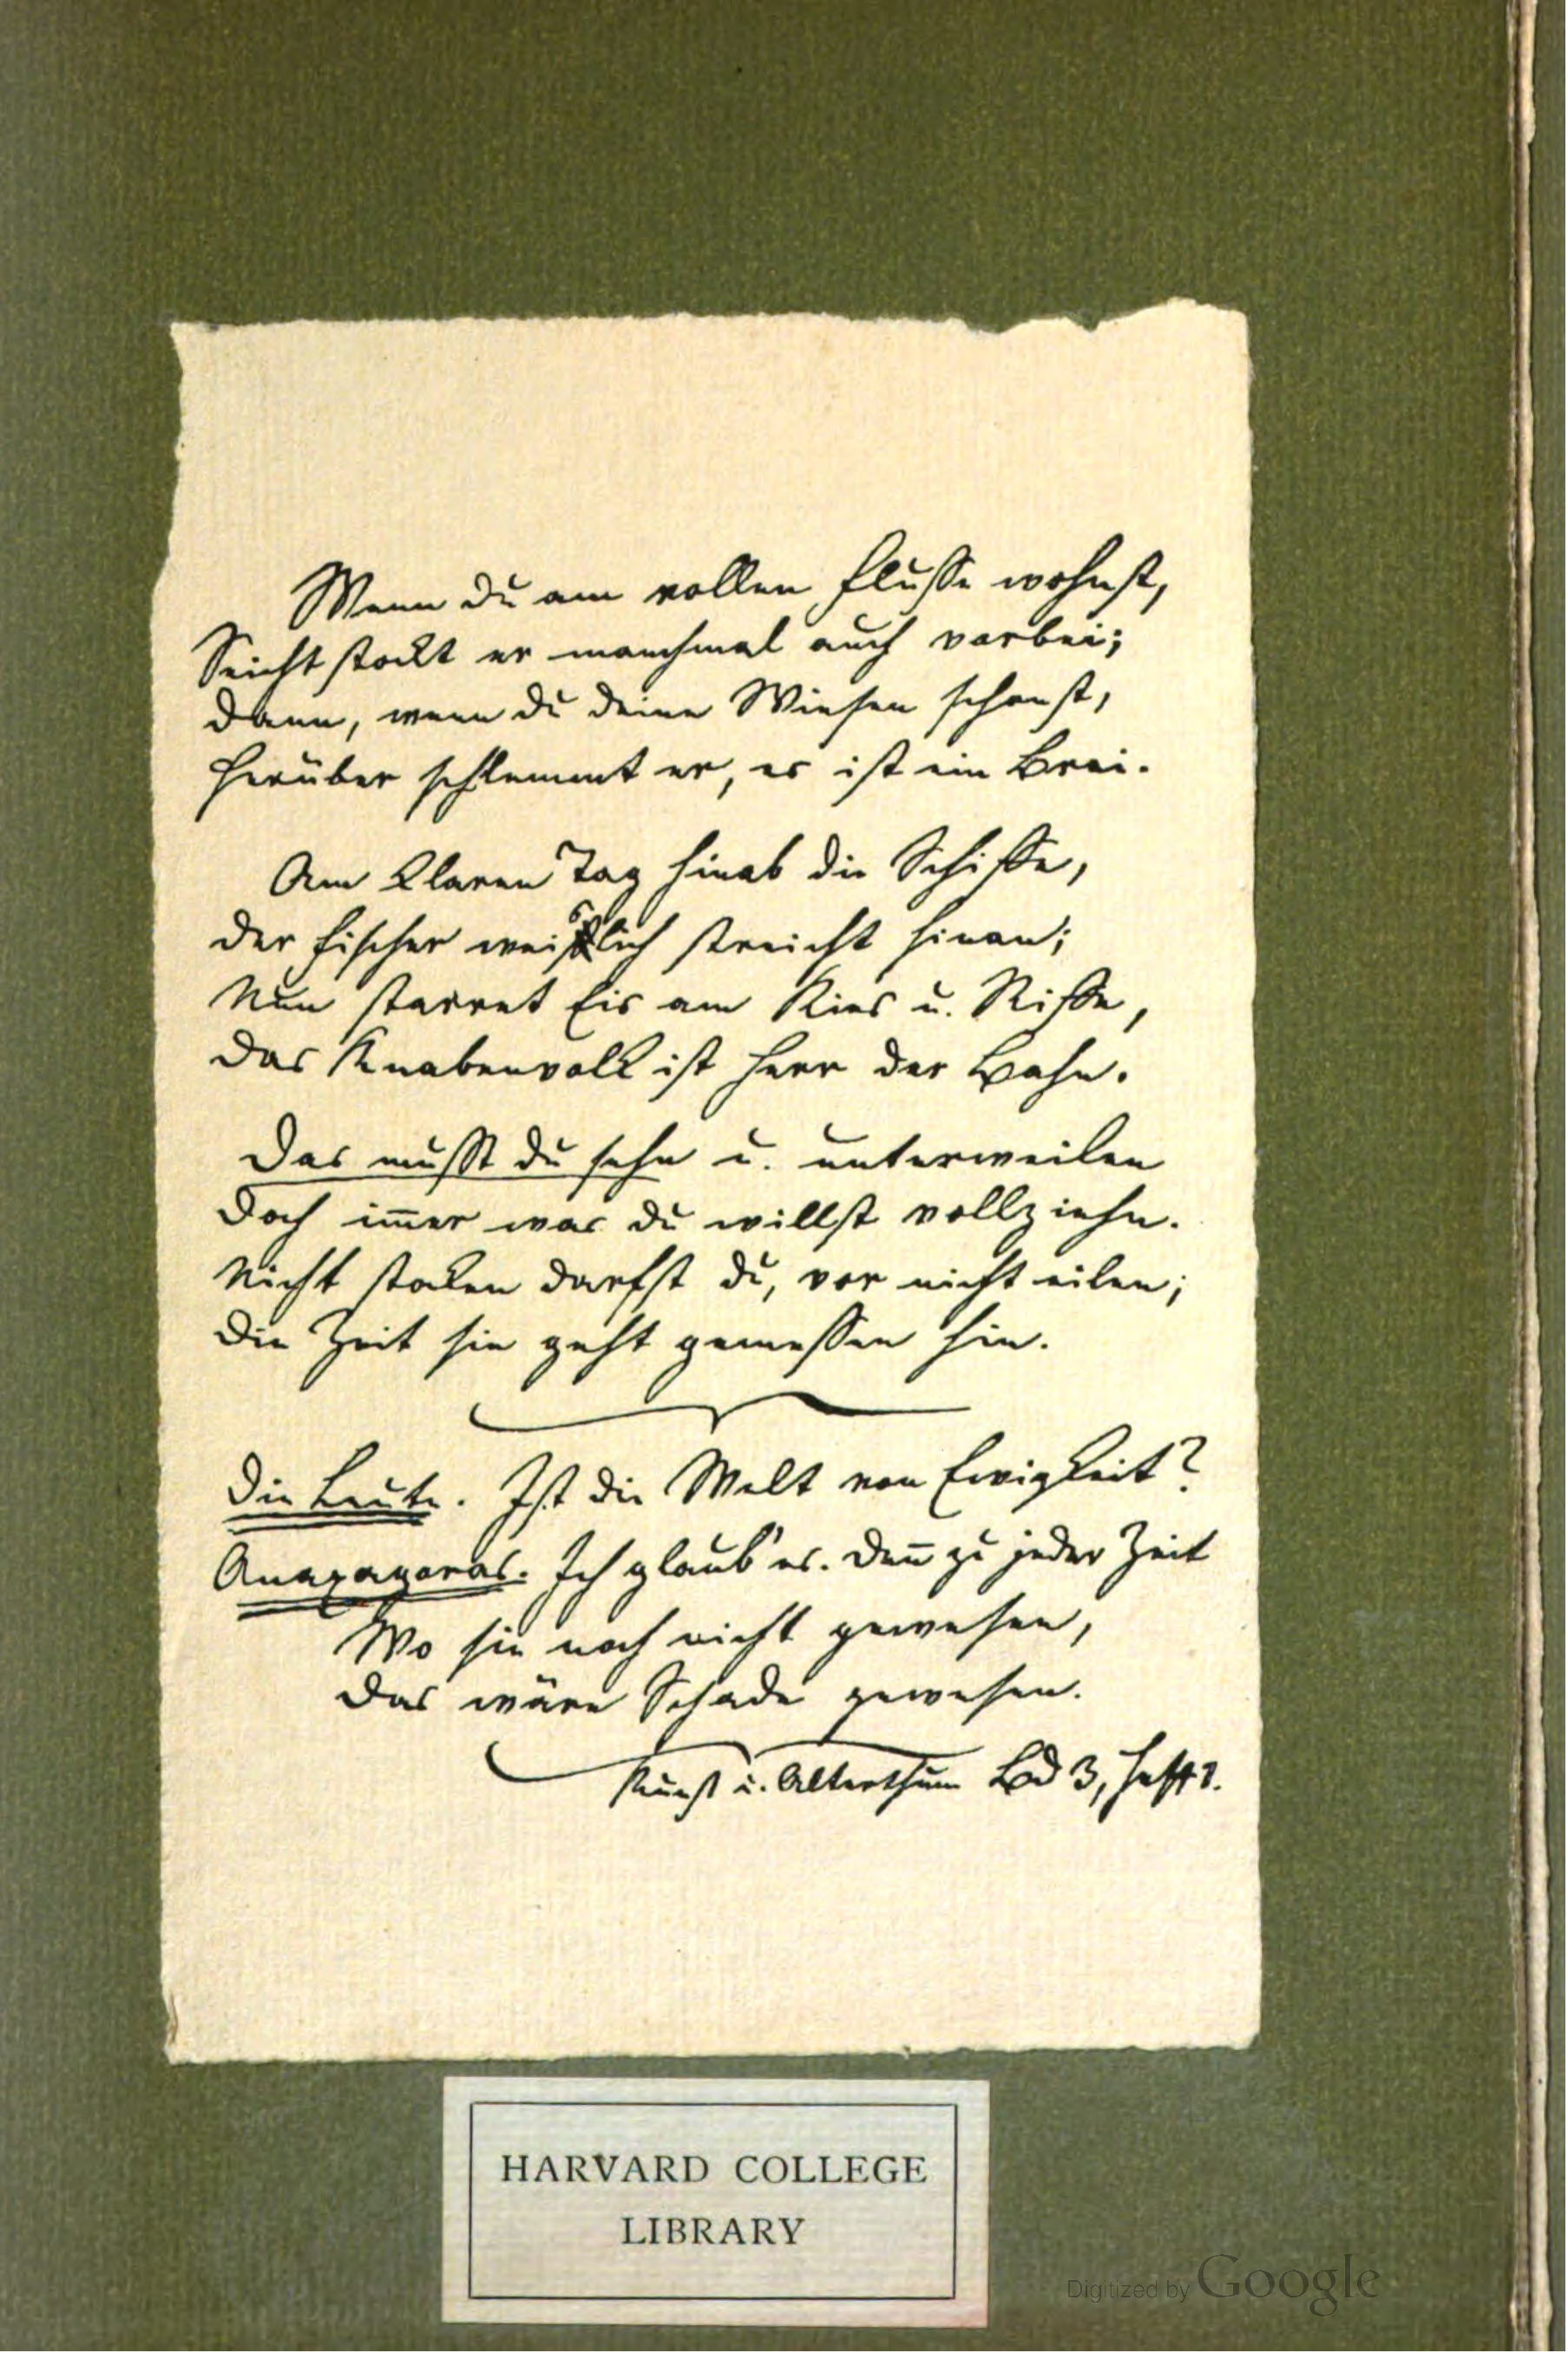 Wenn du am vollen Flusse wohnst,
Seicht stockt er manchmal auch vorbei;
Dann, wenn du deine Wiesen schonst,
Herüber schlemmt er, es ist ein Brei.
Am klaren Tag hinab die Schiffe,
Der Fischer weislich streicht hinan;
Nun starret Eis am Kies u. Riffe,
Das Knabenvolk ist Herr der Bahn.
Das musst du sehn u. unterweilen
Doch im̅er was du willst vollziehn.
Nicht stocken darfst du, vor nicht eilen;
Die Zeit sie geht gemessen hin.
Die Leute. Ist die Welt von Ewigkeit?
Anaxagoras. Ich glaub' es. Den̅ zu jeder Zeit
Wo sie noch nicht gewesen,
Das wäre Schade gewesen.
Kunst u. Alterthum Bd 3, Heft 1.
HARVARD COLLEGE
LIBRARY
Digitized by Google